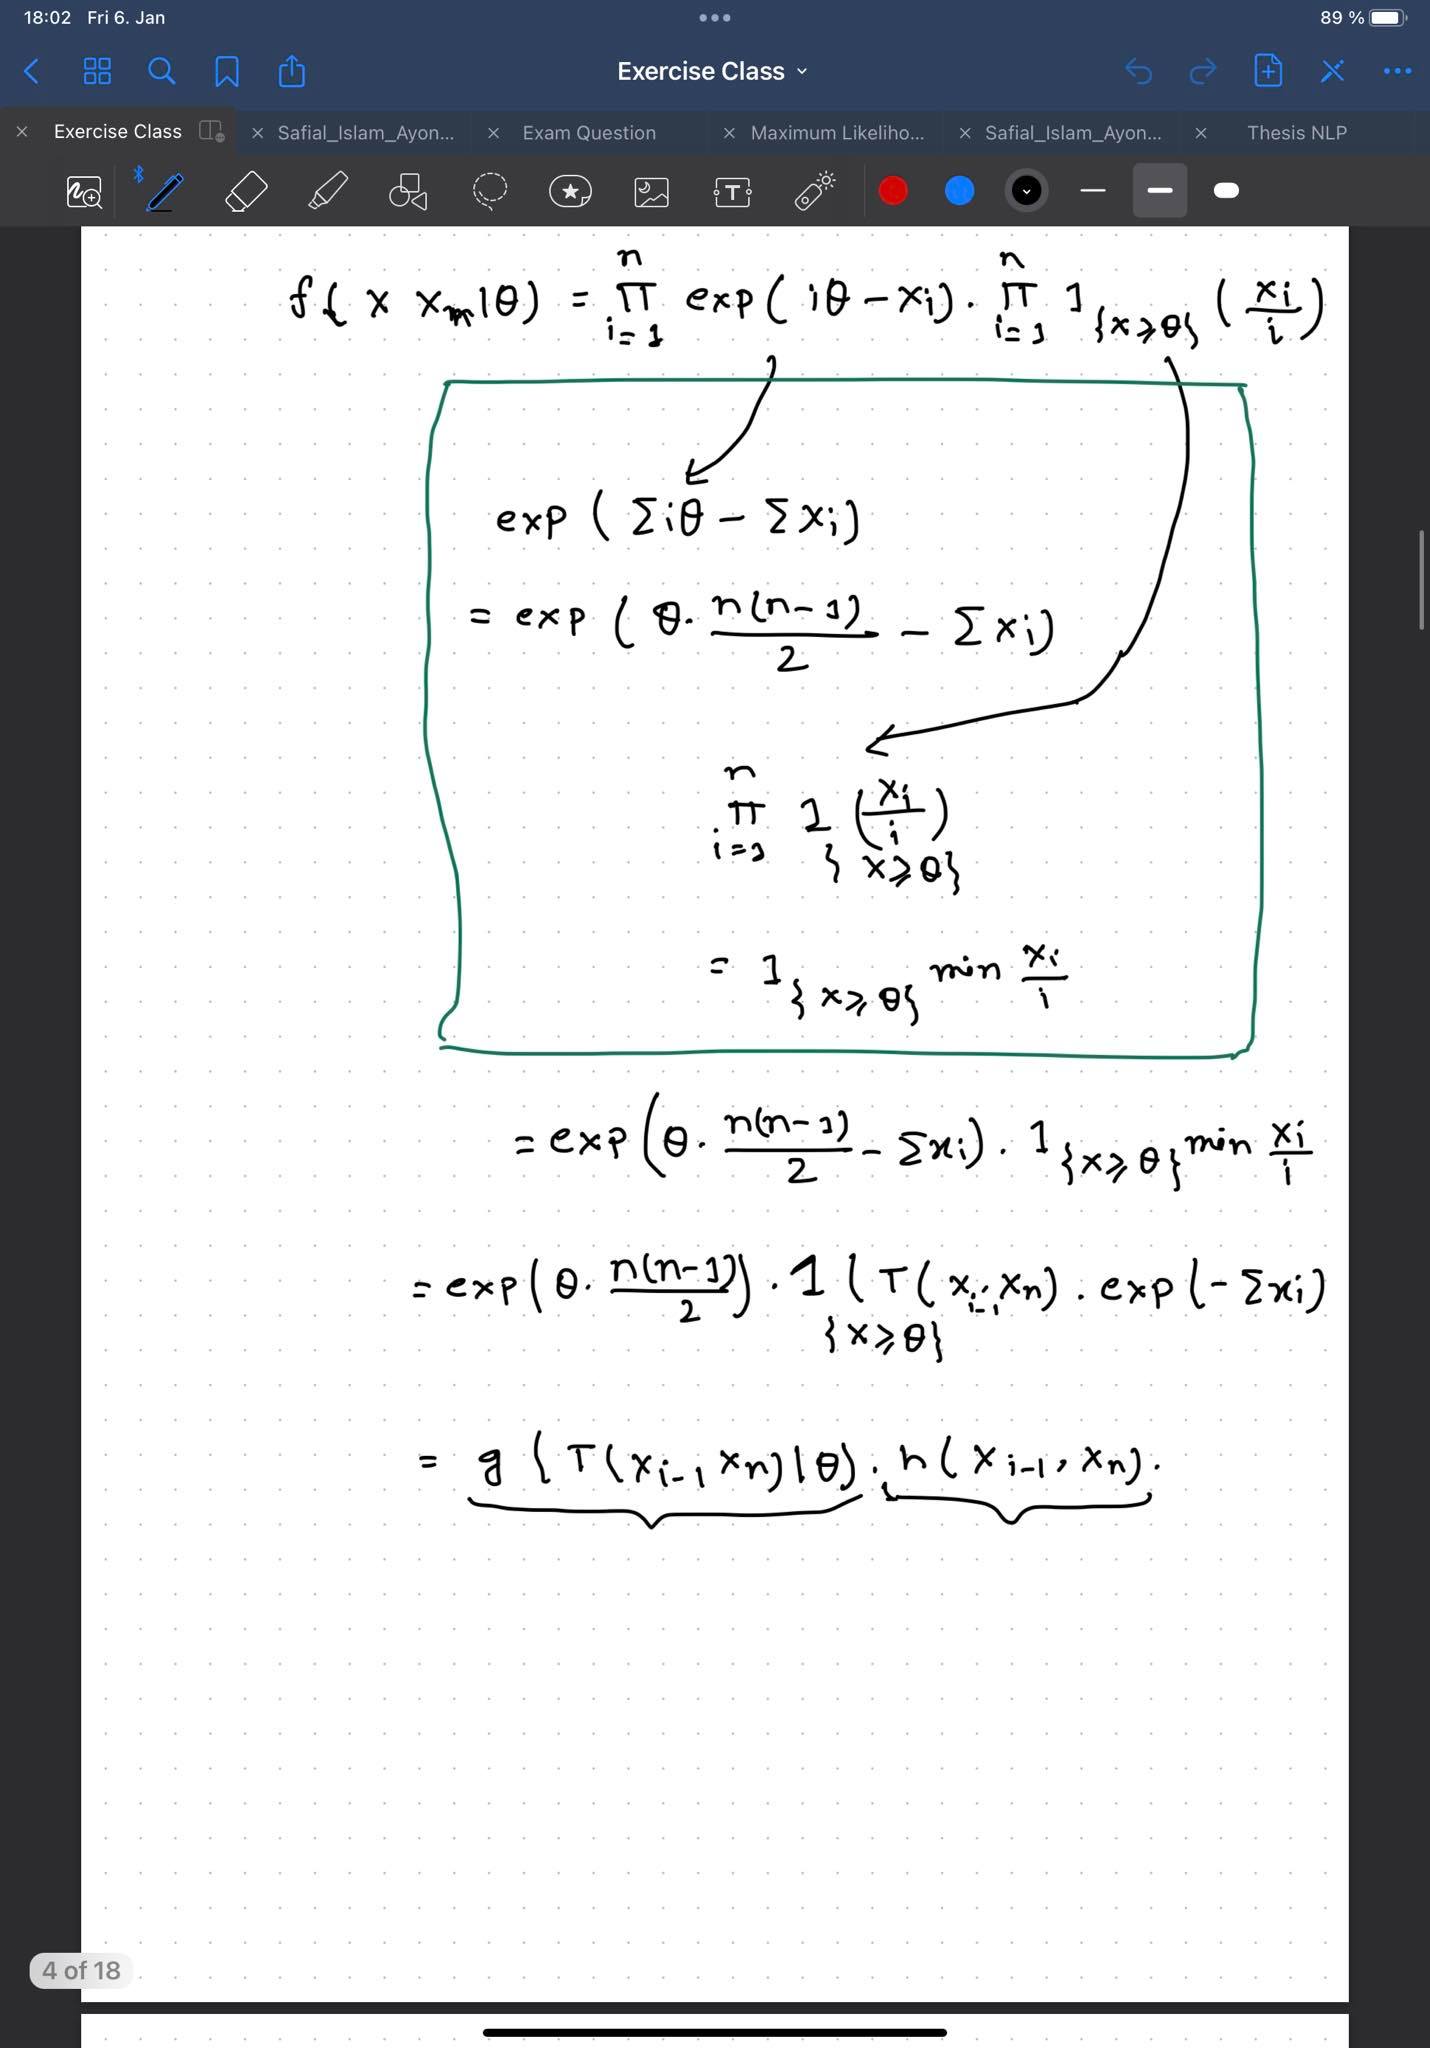 18:02 Fri 6. Jan 89 %
Exercise Class
Exercise Class Safial_Islam_Ayon... Exam Question Maximum Likeliho... Safial_Islam_Ayon... Thesis NLP
f( x x_m|θ) = ∏_{i=1}^{n} exp( iθ - x_i) . ∏_{i=1}^{n} 1_{x≥θ} (x_i/i)
exp ( Σiθ - Σx_i)
= exp ( θ. n(n-1)/2 - Σx_i)
∏_{i=1}^{n} 1_{x≥θ} (x_i/i)
= 1_{x≥θ} min x_i/i
= exp(θ. n(n-1)/2 - Σx_i). 1_{x≥θ} min x_i/i
= exp(θ. n(n-1)/2) . 1_{x≥θ} (T(x_{i-1} x_n) . exp(-Σx_i)
= g(T(x_{i-1} x_n)|θ). h(x_{i-1}, x_n).
4 of 18